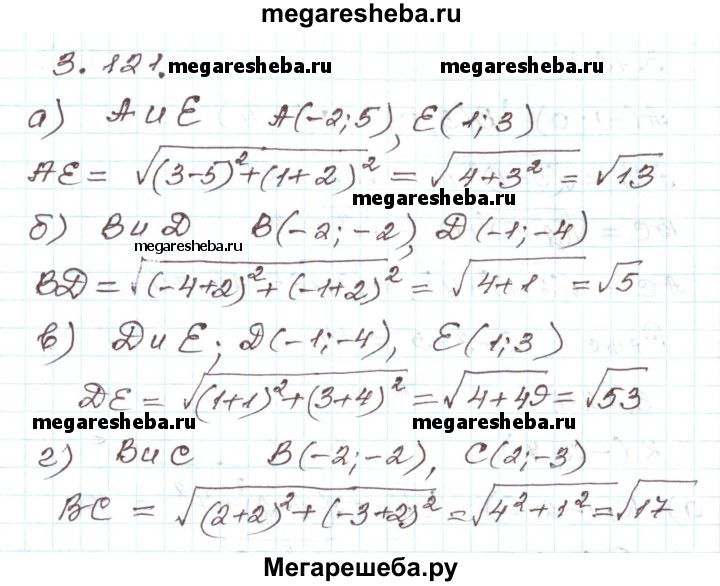 megaresheba.ru
3.121. megaresheba.ru megaresheba.ru
а) А и Е A(-2;5), E(1;3)
AE = √((3-5)²+(1+2)²) = √(4+3²) = √13
megaresheba.ru
б) В и D B(-2;-2), D(-1;-4)
megaresheba.ru
BD = √((-4+2)²+(-1+2)²) = √(4+1) = √5
в) D и E; D(-1;-4), E(1;3)
DE = √((1+1)²+(3+4)²) = √(4+49) = √53
megaresheba.ru megaresheba.ru
г) В и С B(-2;-2), C(2;-3)
BC = √((2+2)²+(-3+2)²) = √(4²+1²) = √17
Мегарешеба.ру